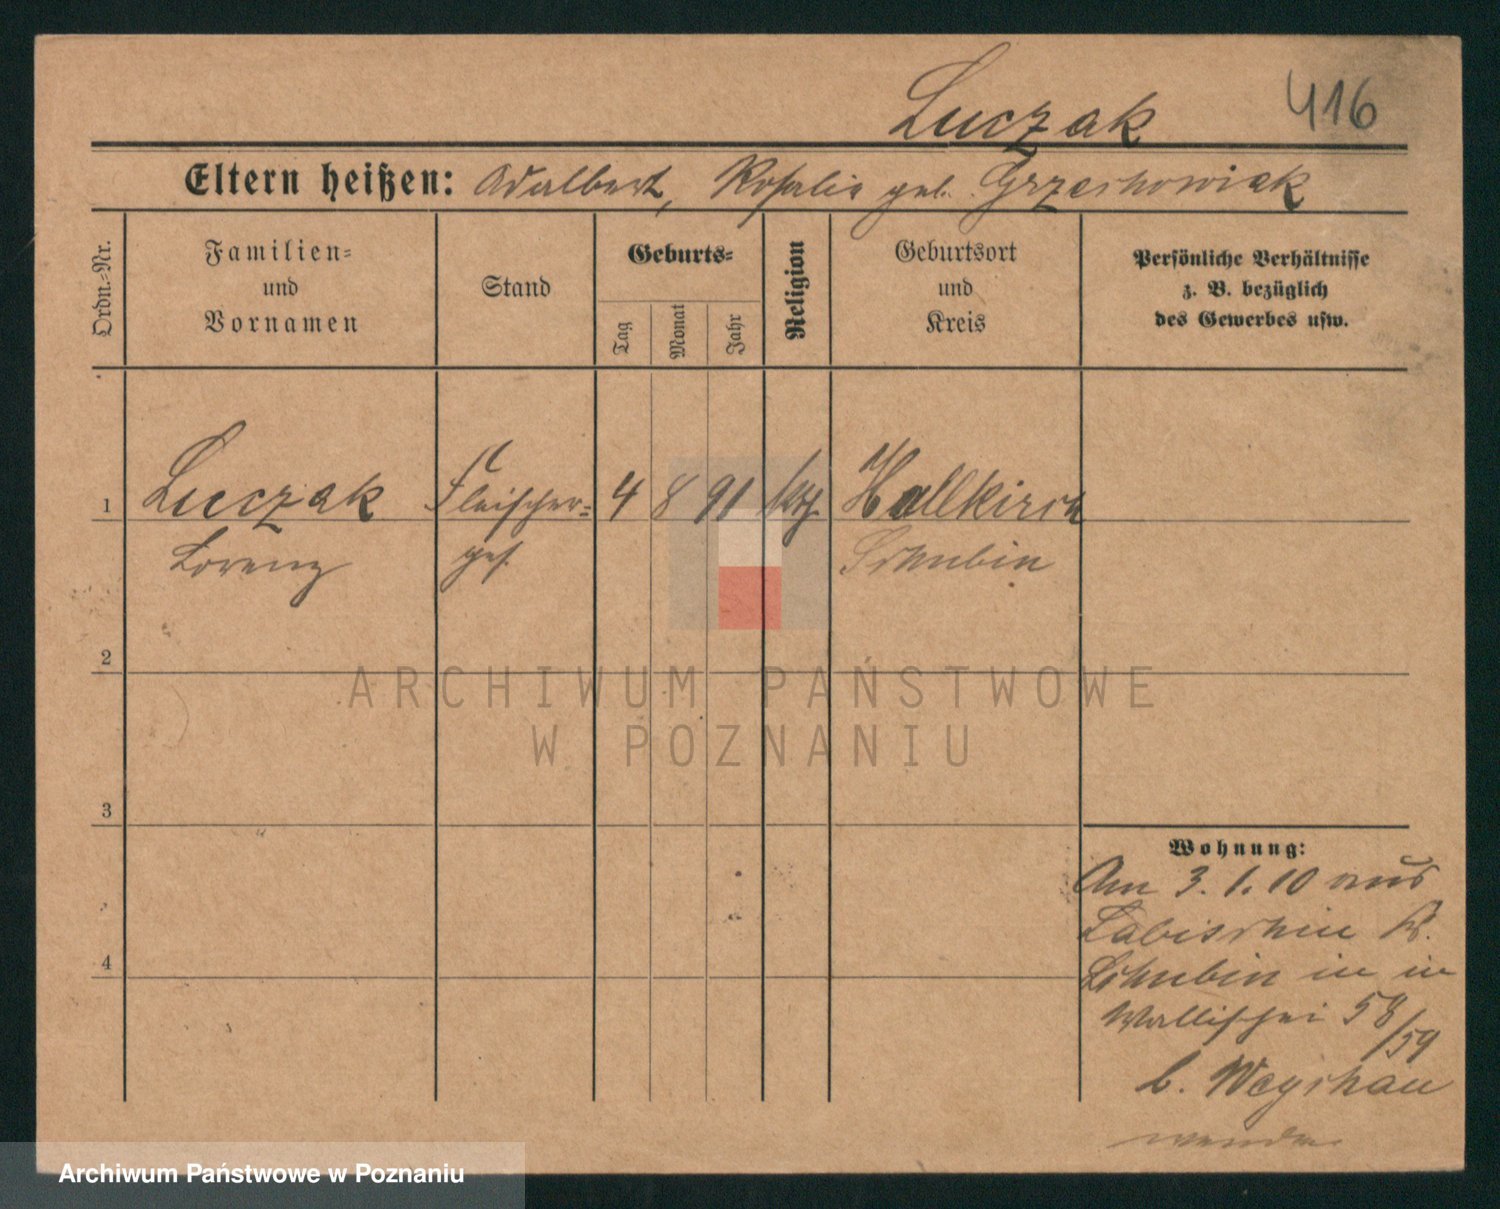 Luczak 416
Eltern heißen: Adalbert, Rosalie geb. Grzeskowiak
Ordn.-Nr.
Familien-
und
Vornamen
Stand
Geburts-
Tag
Monat
Jahr
Religion
Geburtsort
und
Kreis
Persönliche Verhältnisse
z. B. bezüglich
des Gewerbes usw.
1 Luczak Fleischer- 4 8 91 kth. Hallkirch
Lorenz ges. Schubin
2
3
4
Wohnung:
Am 3.1.10 aus
Labischin Kr.
Schubin in in
Wallischei 58/59
b.
wenden
ARCHIWUM PAŃSTWOWE
W POZNANIU
Archiwum Państwowe w Poznaniu